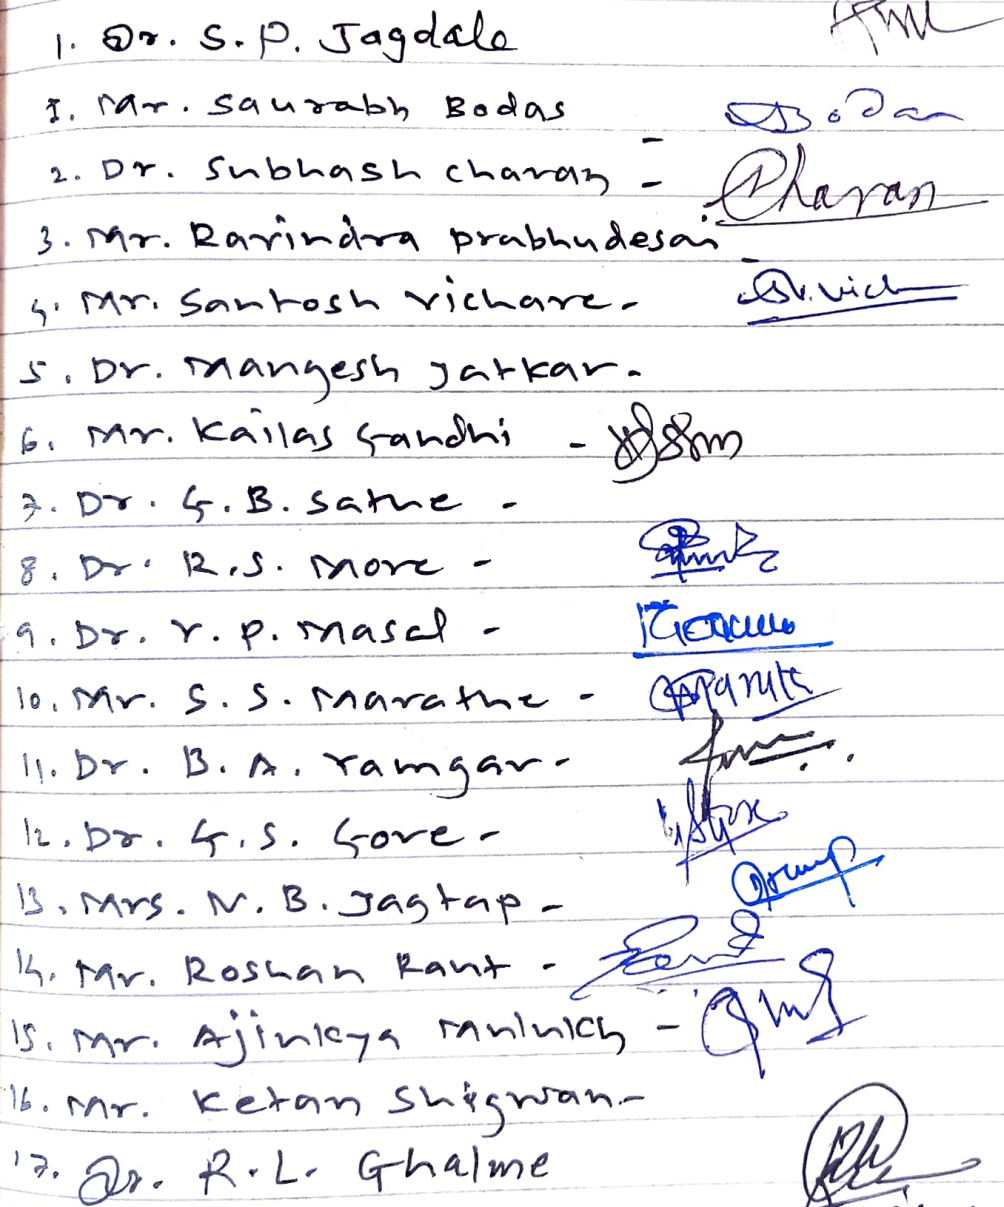 1. Dr. S. P. Jagdale
1. Mr. Saurabh Bodas - Bodas
2. Dr. Subhash Chavan - Chavan
3. Mr. Ravindra Prabhudesai -
4. Mr. Santosh Vichare -
5. Dr. Mangesh Jatkar -
6. Mr. Kailas Gandhi -
7. Dr. G. B. Sathe -
8. Dr. R. S. More -
9. Dr. V. P. Masal -
10. Mr. S. S. Marathe -
11. Dr. B. A. Yamgar -
12. Dr. G. S. Gore -
13. Mrs. N. B. Jagtap -
14. Mr. Roshan Raut -
15. Mr. Ajinkya -
16. Mr. Ketan Shigwan -
17. Dr. R. L. Ghalme